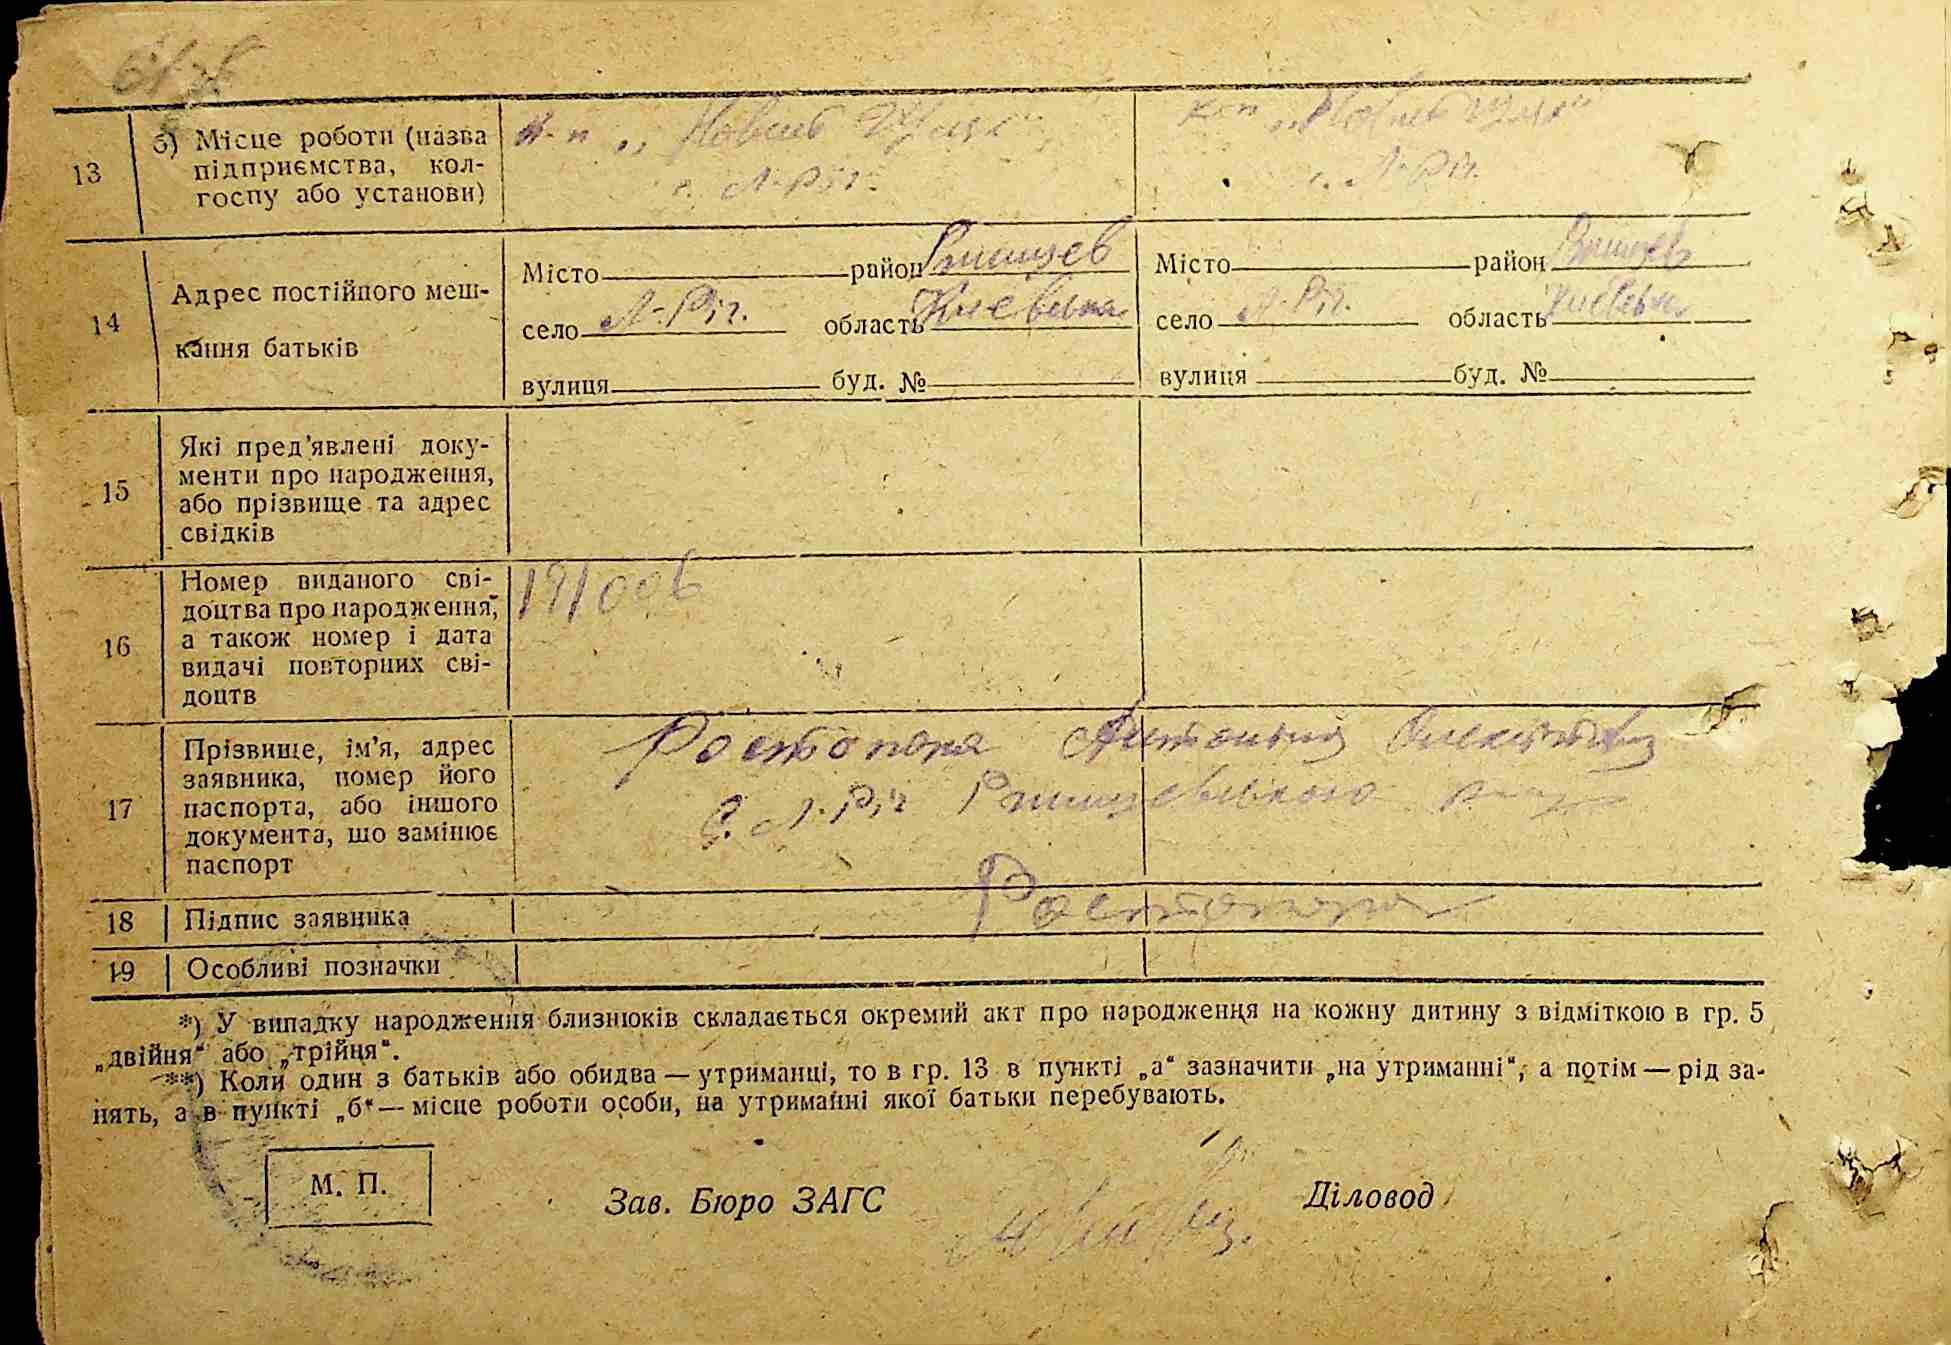 13
б) Місце роботи (назва
підприємства, кол-
госпу або установи)
к-п „Новий Шлях“
с. Л-Ріг.
к-п „Новий Шлях“
с. Л-Ріг.
14
Адрес постійного меш-
кання батьків
Місто район Ржищев
село Л-Ріг. область Киевська
вулиця буд. №
Місто район Ржищев
село Л-Ріг. область Киевськ
вулиця буд. №
15
Які пред’явлені доку-
менти про народження,
або прізвище та адрес
свідків
16
Номер виданого сві-
доцтва про народження,
а також номер і дата
видачі повторних сві-
доцтв
17
Прізвище, ім’я, адрес
заявника, номер його
паспорта, або іншого
документа, що замінює
паспорт
Ростопера
с. Л-Ріг Ржищевського
18
Підпис заявника
19
Особливі позначки
*) У випадку народження близнюків складається окремий акт про народження на кожну дитину з відміткою в гр. 5
„двійня“ або „трійця“.
**) Коли один з батьків або обидва — утриманці, то в гр. 13 в пункті „а“ зазначити „на утриманні“, а потім — рід за-
нять, а в пункті „б“ — місце роботи особи, на утриманні якої батьки перебувають.
М. П.
Зав. Бюро ЗАГС
Діловод